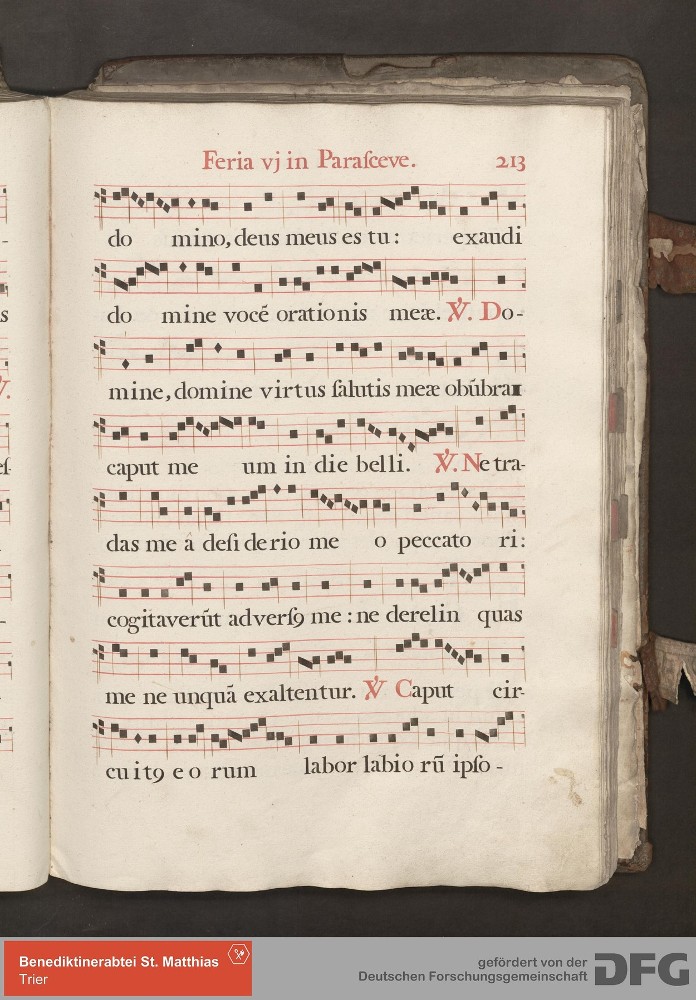 Feria vj in Paraſceve. 213
do mino, deus meus es tu: exaudi
do mine vocẽ orationis meæ. ℣. Do-
mine, domine virtus ſalutis meæ obũbra
caput me um in die belli. ℣. Ne tra-
das me â deſi derio me o peccato ri:
cogitaverũt adverſꝯ me: ne derelin quas
me ne unquã exaltentur. ℣ Caput cir-
cuitꝯ eo rum labor labio rũ ipſo -
Benediktinerabtei St. Matthias
Trier
gefördert von der
Deutschen Forschungsgemeinschaft
DFG